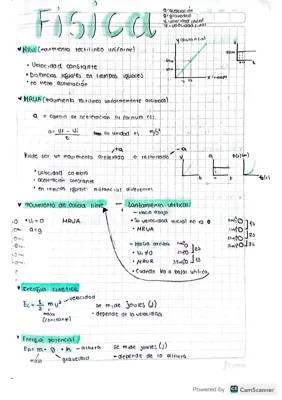 Física
a = aceleración
g = gravedad
MRU (movimiento rectilíneo uniforme)
• Velocidad constante
• Distancias iguales en tiempos iguales
• no tiene aceleración
MRUA (movimiento rectilíneo uniformemente acelerado)
a = cambio de aceleración su formula es:
a = Vf - Vi
t
la unidad es m/s²
Puede ser un movimiento acelerado o retardado
+a
-a
• Velocidad cambia
• aceleración constante
• en tiempos iguales distancias diferentes
Movimiento de caída libre
• Vi = 0 MRUA
• a = g
Lanzamiento vertical
- hacia abajo
• Su velocidad inicial no es 0
• MRUA
- Hacia arriba
• Vi ≠ 0
• MRUR
• Cuando va a bajar utiliza
Energía cinética
Ec = 1/2 m v² → velocidad
masa
(constante)
se mide joules (J)
- depende de la velocidad
Energía potencial
Ep = m · g · h → altura
masa gravedad
se mide joules (J)
- depende de la altura
Powered by CS CamScanner